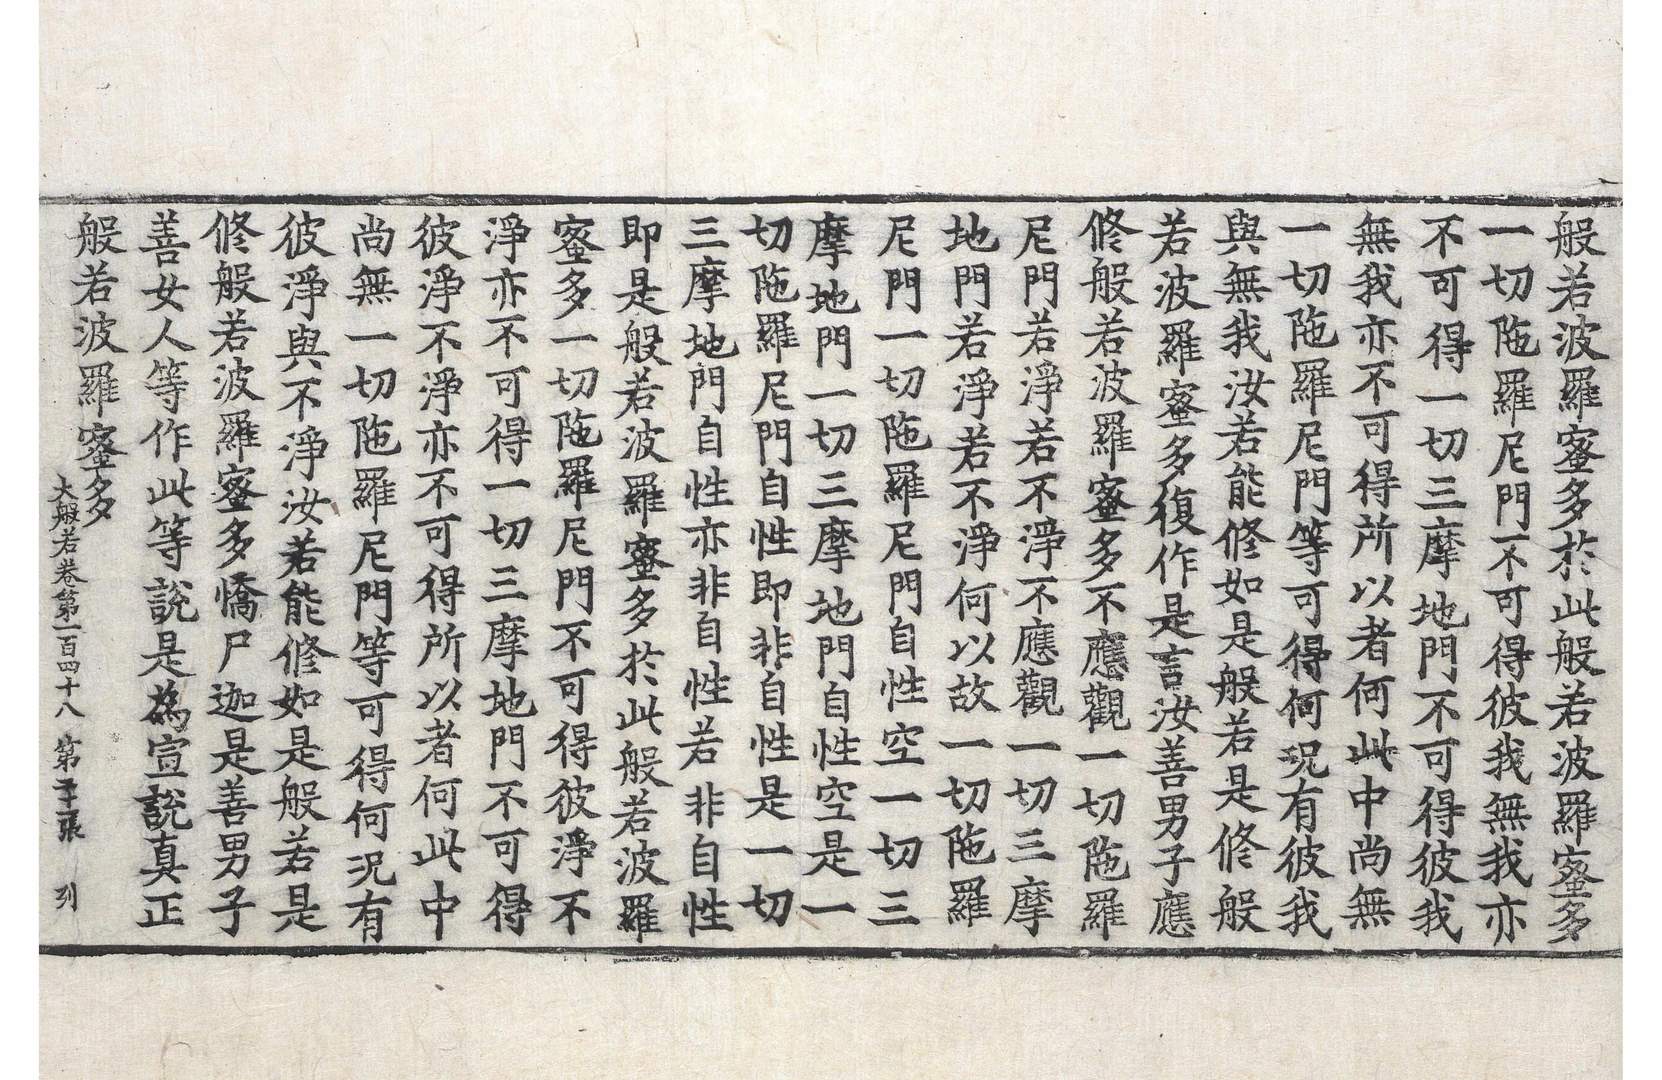 般若波羅蜜多於此般若波羅蜜多
一切陁羅尼門不可得彼我無我亦
不可得一切三摩地門不可得彼我
無我亦不可得所以者何此中尚無
一切陁羅尼門等可得何況有彼我
與無我汝若能修如是般若是修般
若波羅蜜多復作是言汝善男子應
修般若波羅蜜多不應觀一切陁羅
尼門若淨若不淨不應觀一切三摩
地門若淨若不淨何以故一切陁羅
尼門一切陁羅尼門自性空一切三
摩地門一切三摩地門自性空是一
切陁羅尼門自性即非自性是一切
三摩地門自性亦非自性若非自性
即是般若波羅蜜多於此般若波羅
蜜多一切陁羅尼門不可得彼淨不
淨亦不可得一切三摩地門不可得
彼淨不淨亦不可得所以者何此中
尚無一切陁羅尼門等可得何況有
彼淨與不淨汝若能修如是般若是
修般若波羅蜜多憍尸迦是善男子
善女人等作此等說是為宣說真正
般若波羅蜜多
大般若卷第一百四十八 第 張 列